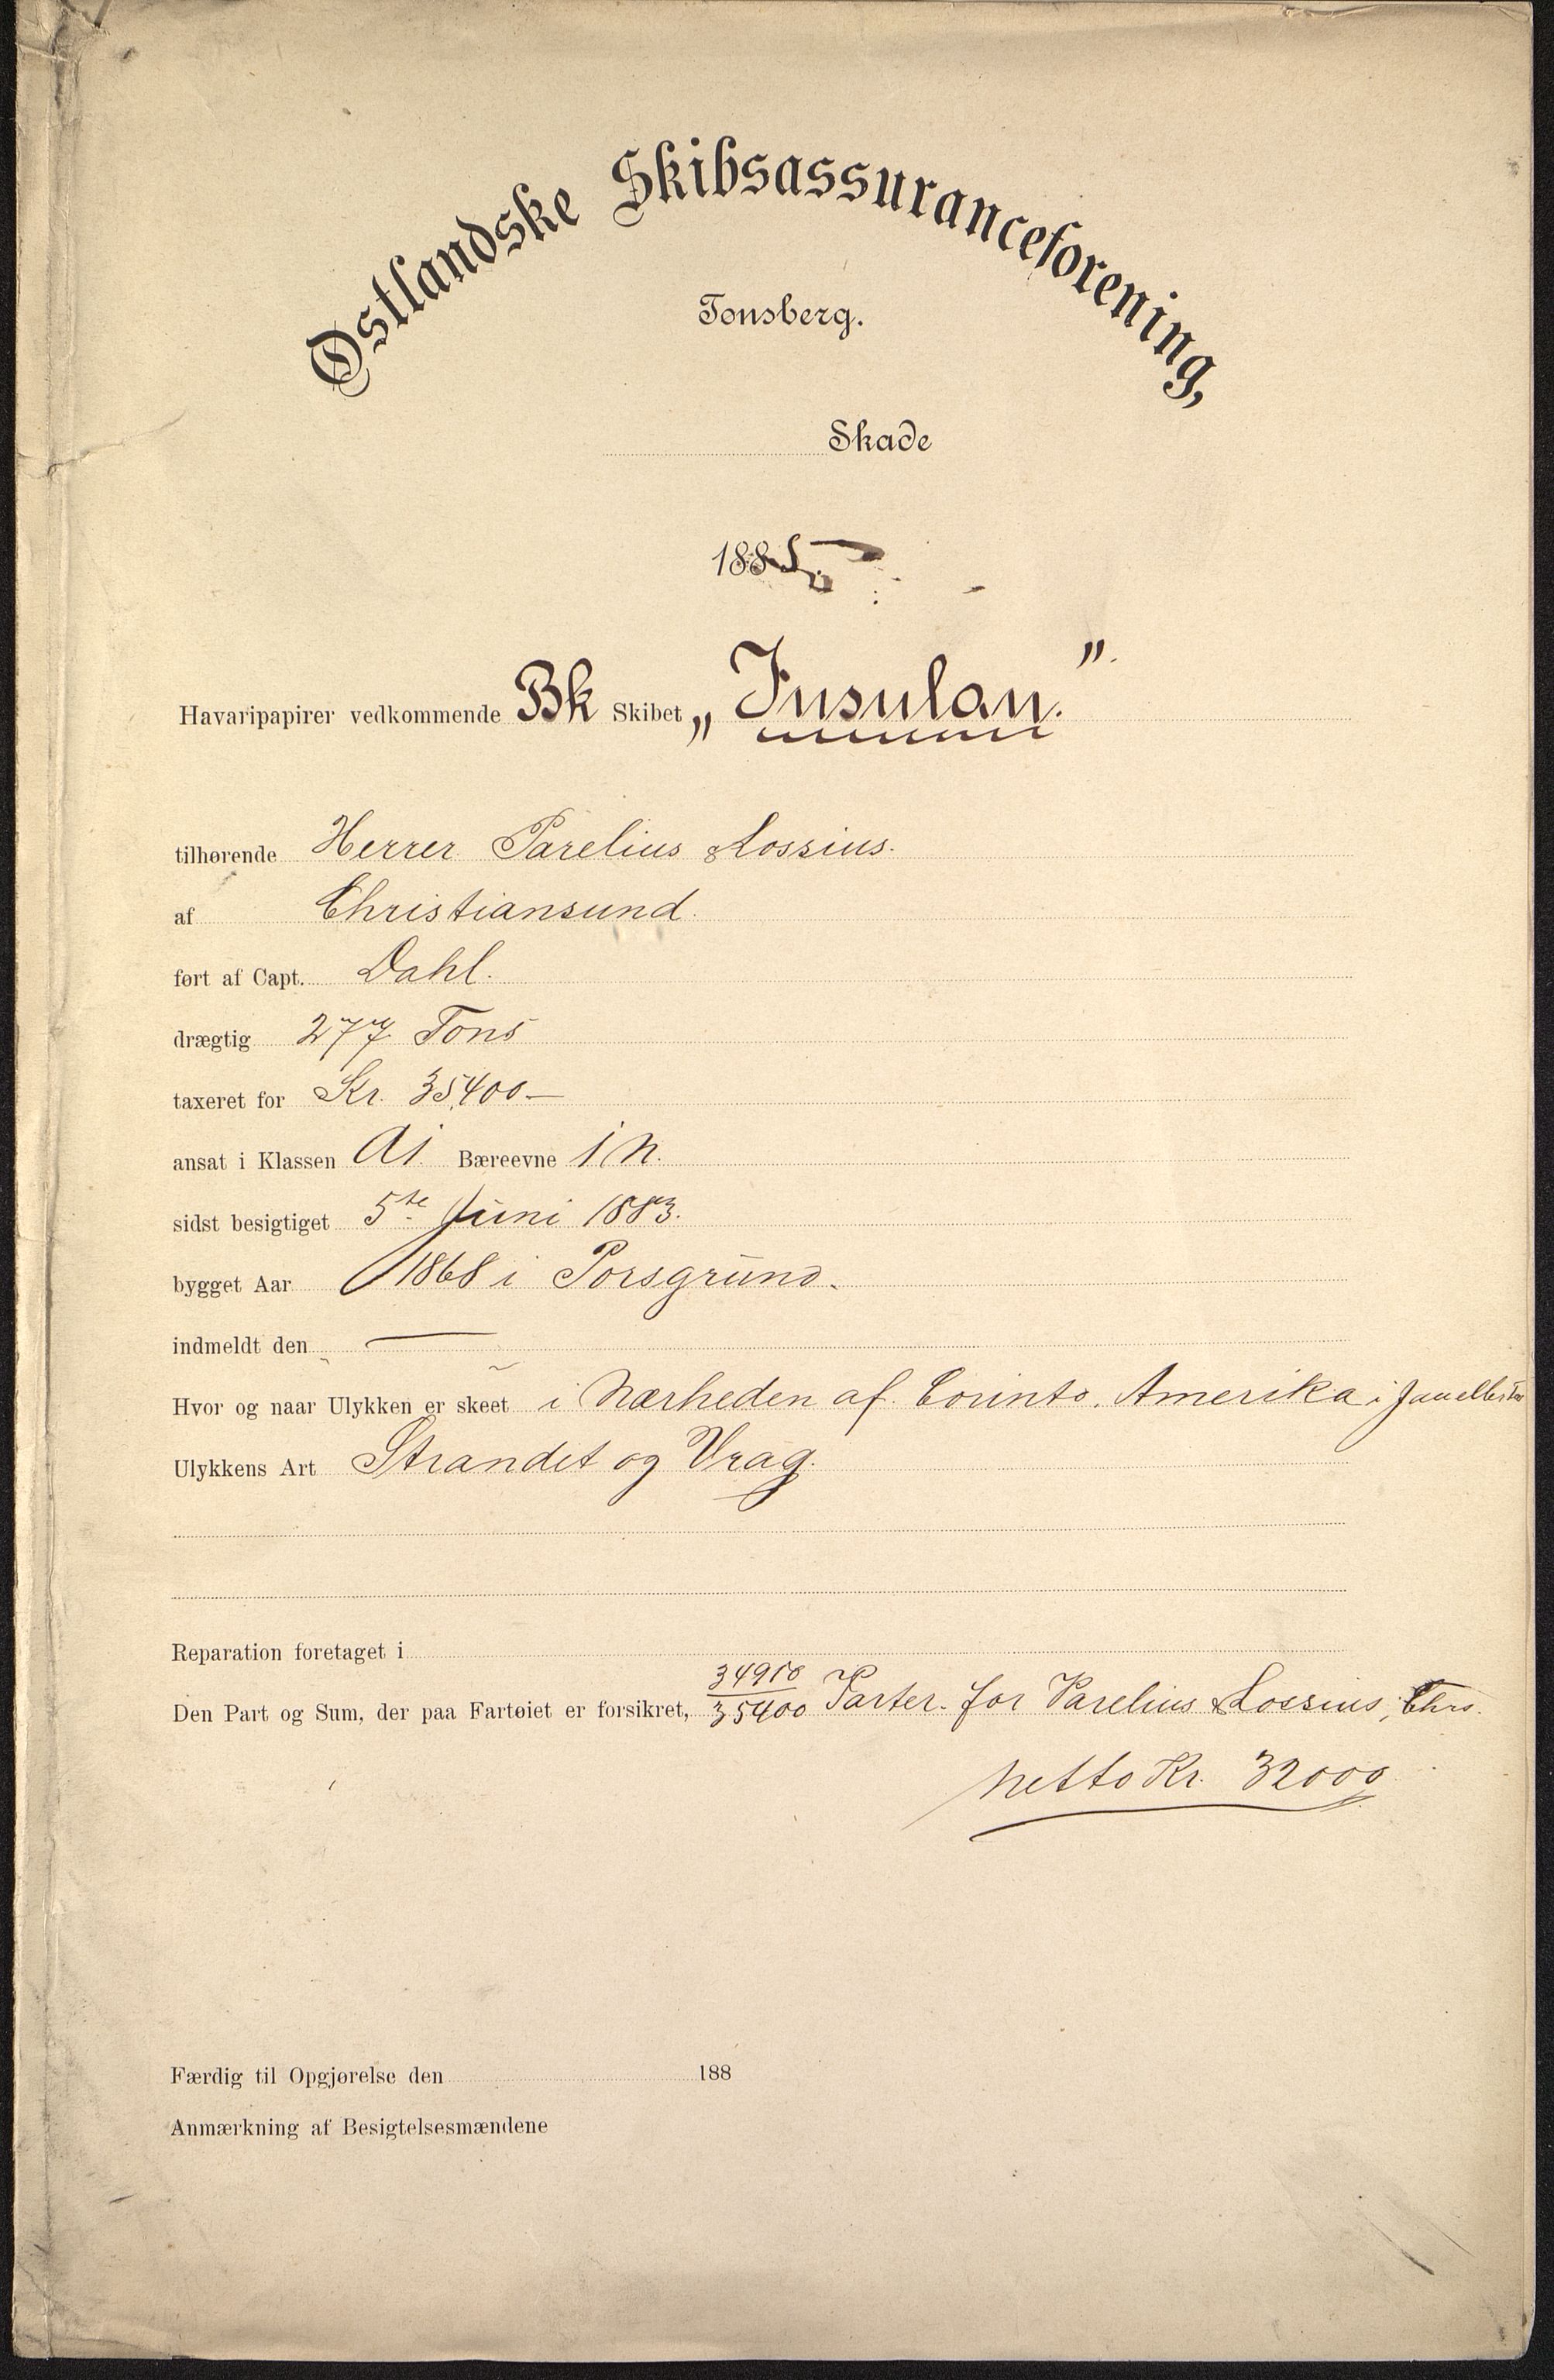 Østlandske Skibsassuranceforening,
Tønsberg.
Skade
1885
Havaripapirer vedkommende Bk Skibet „Insulan."
tilhørende Herrer Parelius & Lossius.
af Christiansund.
ført af Capt. Dahl.
drægtig 277 Tons
taxeret for Kr. 35,400 —
ansat i Klassen A1. Bæreevne 1 N.
sidst besigtiget 5te Juni 1883.
bygget Aar 1868 i Porsgrund.
indmeldt den —
Hvor og naar Ulykken er skeet i Nærheden af Corinto. Amerika i
Ulykkens Art Strandet og Vrag.
Reparation foretaget i
Den Part og Sum, der paa Fartøiet er forsikret, 34910/35400 Parter. for Parelius & Lossius, Chrs.
Netto Kr. 32000
Færdig til Opgjørelse den 188
Anmærkning af Besigtelsesmændene